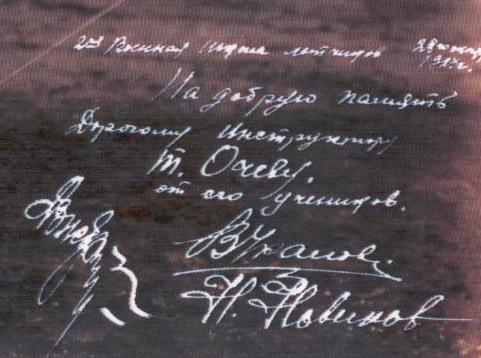 2ая Военная Школа летчиков 28 
На добрую память
Дорогому инструктору
т. Очеву.
от его учеников.
Н. Новиков